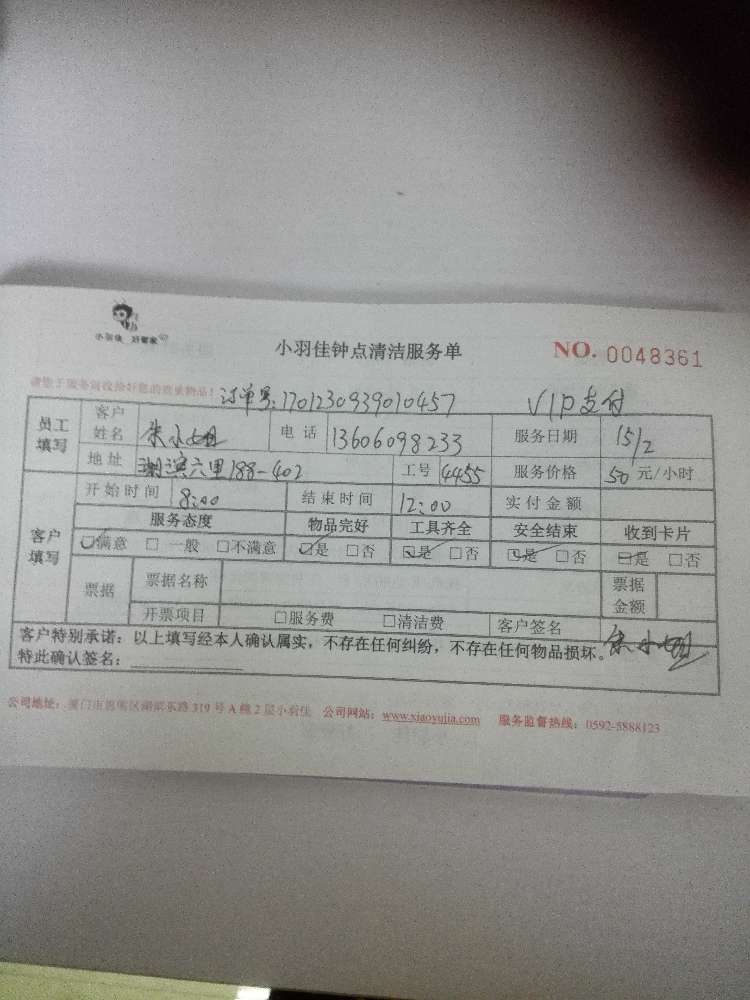 小羽佳 好管家
小羽佳钟点清洁服务单 NO. 0048361
请您于服务前收拾好您的贵重物品! 订单号:1701230939010457 VIP支付
员工填写 客户姓名 朱小姐 电话 13606098233 服务日期 15/2
地址 湖滨六里188-402 工号 4455 服务价格 50 元/小时
开始时间 8:00 结束时间 12:00 实付金额
客户填写 服务态度 物品完好 工具齐全 安全结束 收到卡片
☑满意 □一般 □不满意 ☑是 □否 ☑是 □否 ☑是 □否 ☑是 □否
票据 票据名称 票据金额
开票项目 □服务费 □清洁费 客户签名 朱小姐
客户特别承诺:以上填写经本人确认属实,不存在任何纠纷,不存在任何物品损坏。
特此确认签名:
公司地址:厦门市思明区湖滨东路319号A幢2层小羽佳 公司网站:www.xiaoyujia.com 服务监督热线:0592-5888123